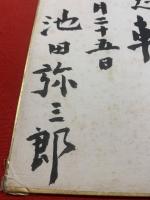 軒
月二十五日
池田弥三郎